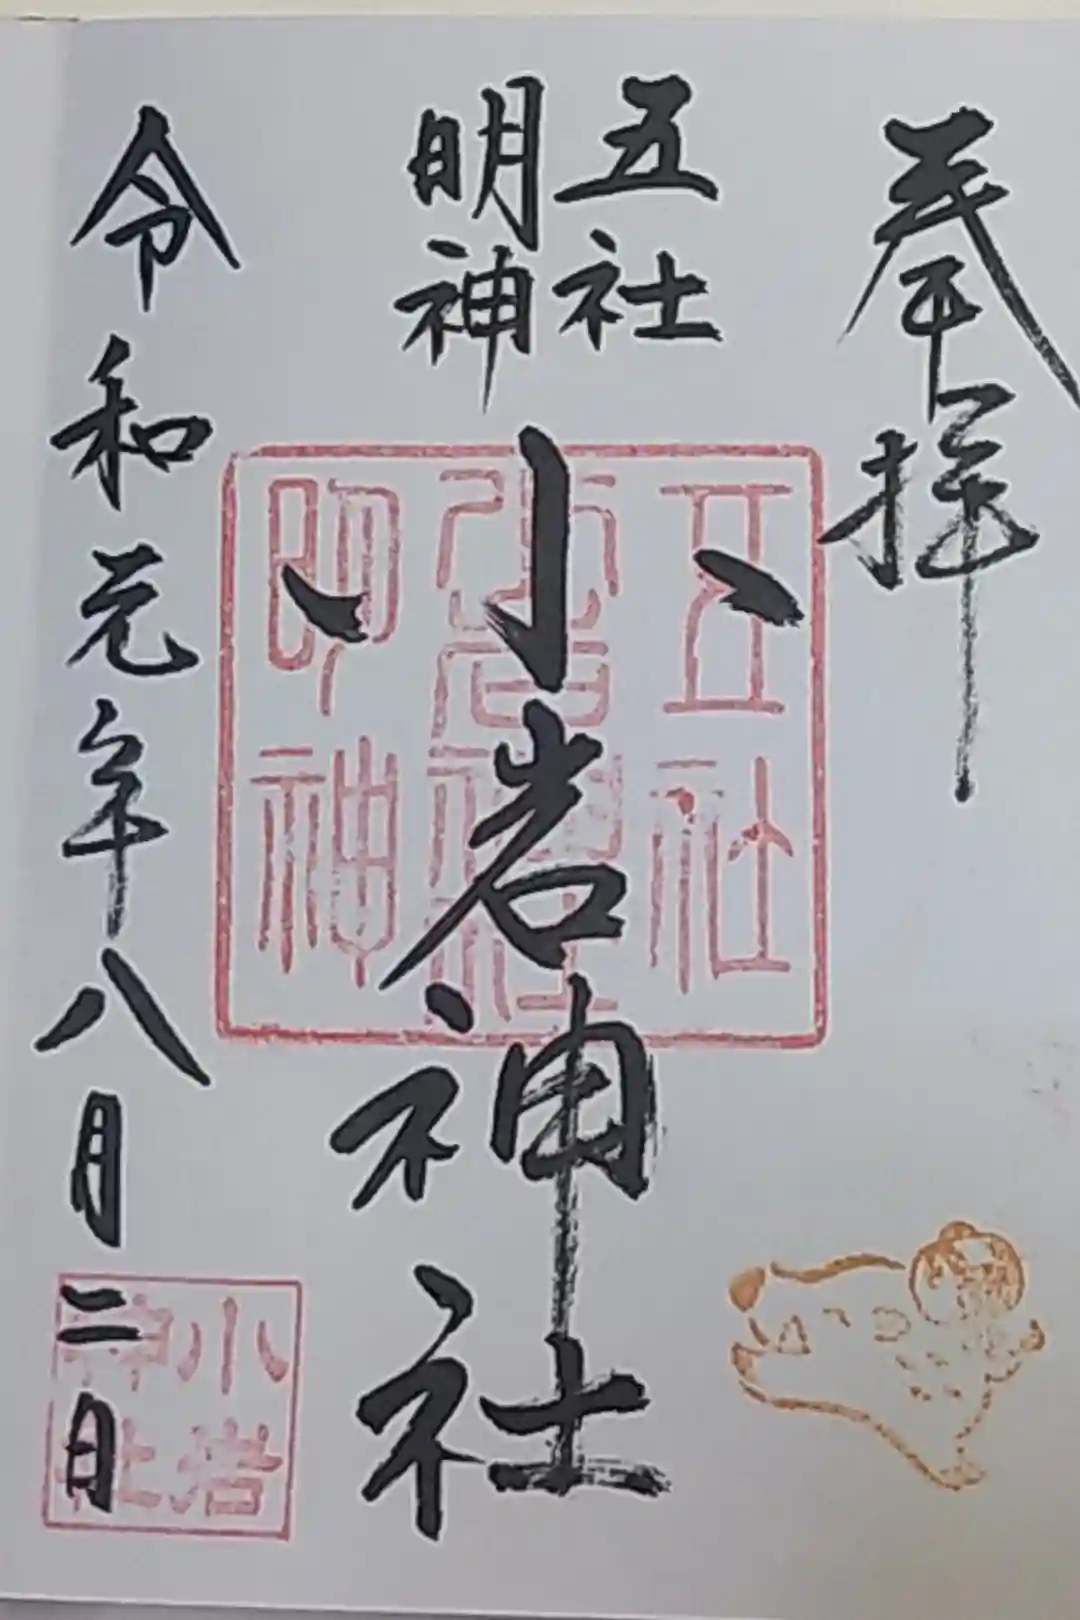 奉拝
五社
明神
小岩神社
令和元年八月二日
五社
小岩神社
明神
小岩
神社